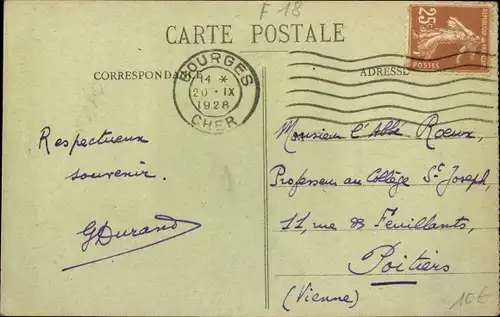 F 18
CARTE POSTALE
CORRESPONDANCE
ADRESSE
BOURGES
14 *
20 · IX
1928
CHER
25c
Respectueux
souvenir.
GDurand
Monsieur l'Abbé Roeux,
Professeur au Collège St Joseph,
11, rue des Feuillants,
Poitiers
(Vienne)
10€